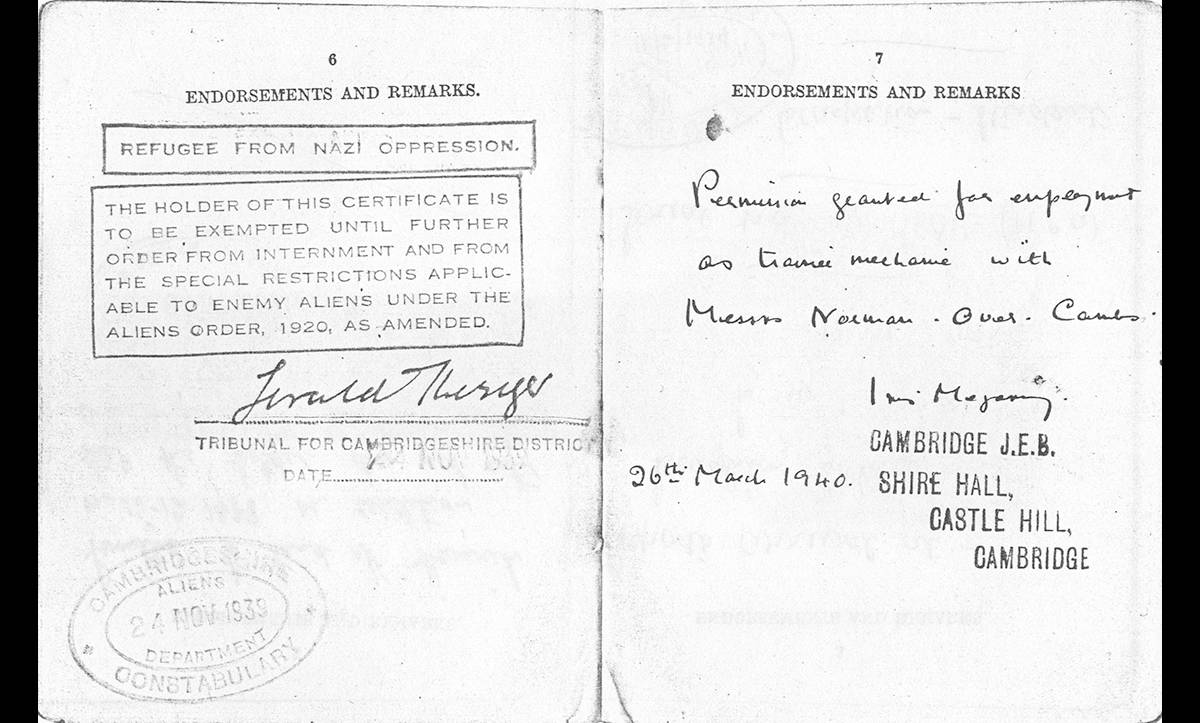 6
ENDORSEMENTS AND REMARKS.
REFUGEE FROM NAZI OPPRESSION.
THE HOLDER OF THIS CERTIFICATE IS
TO BE EXEMPTED UNTIL FURTHER
ORDER FROM INTERNMENT AND FROM
THE SPECIAL RESTRICTIONS APPLIC-
ABLE TO ENEMY ALIENS UNDER THE
ALIENS ORDER, 1920, AS AMENDED.
TRIBUNAL FOR CAMBRIDGESHIRE DISTRICT
DATE
CAMBRIDGESHIRE
ALIENS
24 NOV 1939
DEPARTMENT
CONSTABULARY
7
ENDORSEMENTS AND REMARKS
Permission granted for employment
as trainee mechanic with
Messrs Norman. Over. Cambs.
CAMBRIDGE J.E.B.
26th March 1940.
SHIRE HALL,
CASTLE HILL,
CAMBRIDGE